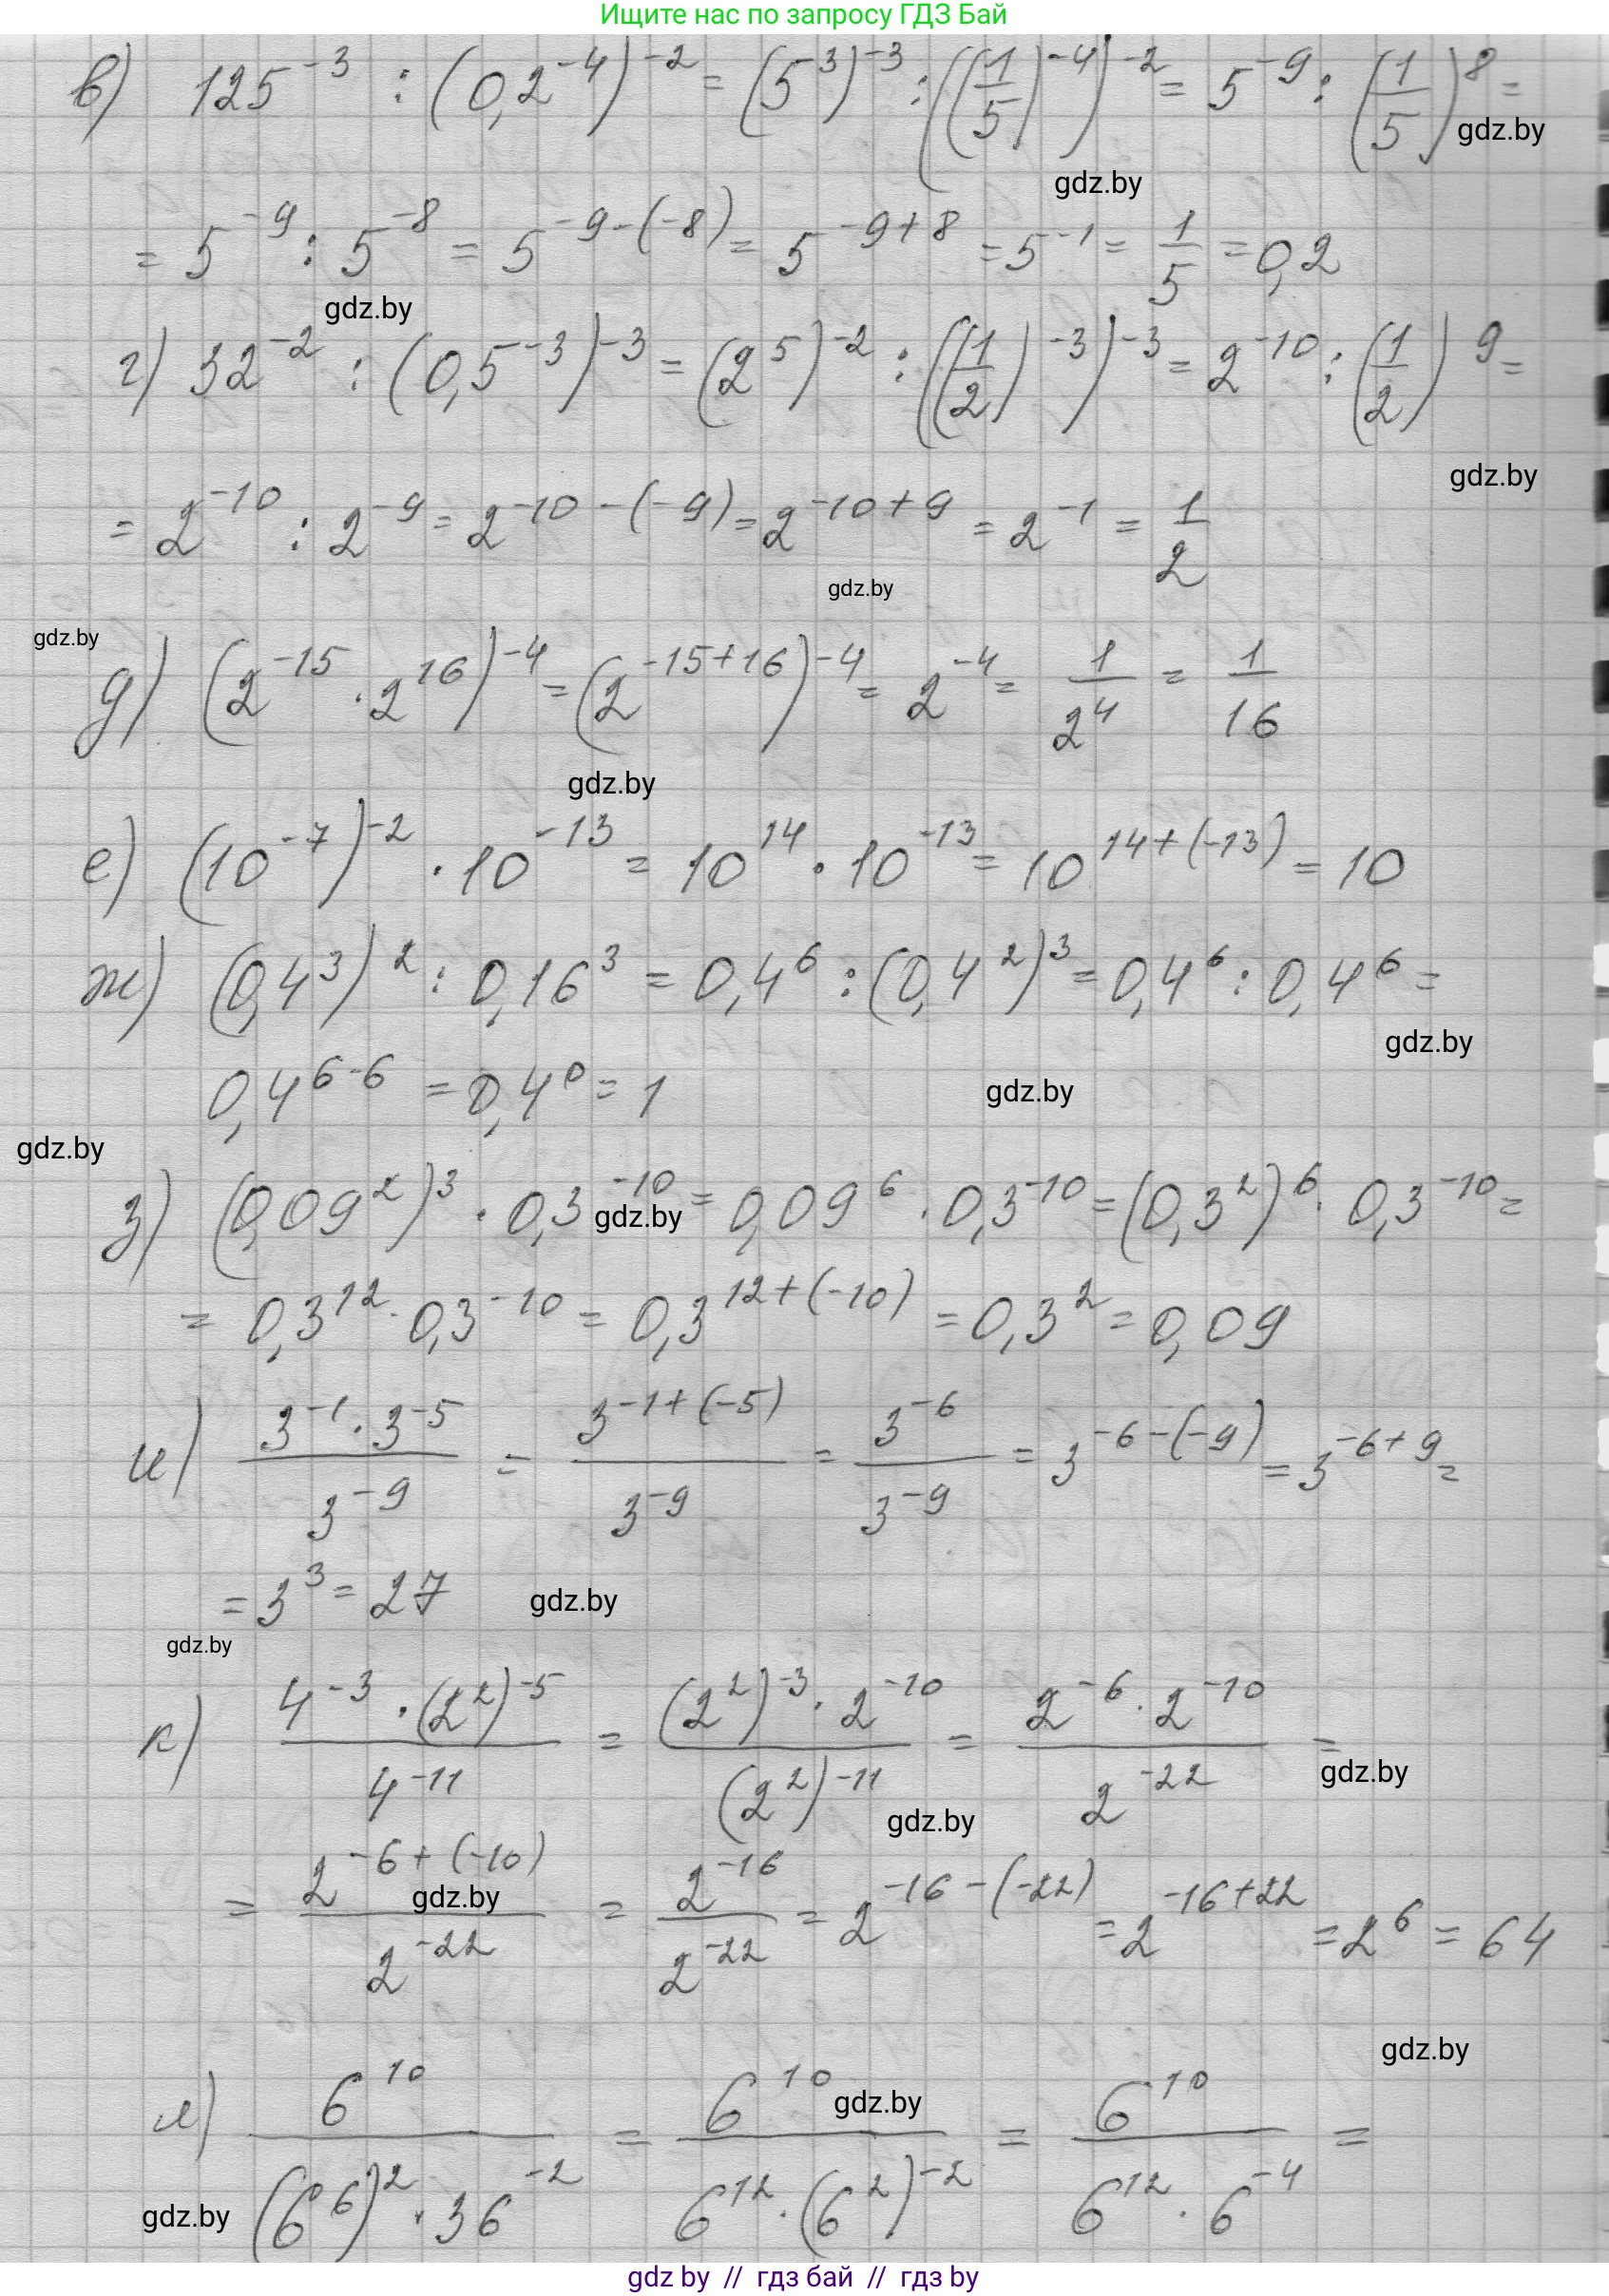 Ищите нас по запросу ГДЗ Бай
в) 125⁻³ : (0,2⁻⁴)⁻² = (5³)⁻³ : ((1/5)⁻⁴)⁻² = 5⁻⁹ : (1/5)⁸ =
gdz.by
gdz.by
= 5⁻⁹ : 5⁻⁸ = 5⁻⁹⁻⁽⁻⁸⁾ = 5⁻⁹⁺⁸ = 5⁻¹ = 1/5 = 0,2
gdz.by
г) 32⁻² : (0,5⁻³)⁻³ = (2⁵)⁻² : ((1/2)⁻³)⁻³ = 2⁻¹⁰ : (1/2)⁹ =
gdz.by
= 2⁻¹⁰ : 2⁻⁹ = 2⁻¹⁰⁻⁽⁻⁹⁾ = 2⁻¹⁰⁺⁹ = 2⁻¹ = 1/2
gdz.by
gdz.by
д) (2⁻¹⁵ · 2¹⁶)⁻⁴ = (2⁻¹⁵⁺¹⁶)⁻⁴ = 2⁻⁴ = 1/2⁴ = 1/16
gdz.by
е) (10⁻⁷)⁻² · 10⁻¹³ = 10¹⁴ · 10⁻¹³ = 10¹⁴⁺⁽⁻¹³⁾ = 10
ж) (0,4³)² : 0,16³ = 0,4⁶ : (0,4²)³ = 0,4⁶ : 0,4⁶ =
gdz.by
0,4⁶⁻⁶ = 0,4⁰ = 1
gdz.by
gdz.by
з) (0,09²)³ · 0,3⁻¹⁰ = 0,09⁶ · 0,3⁻¹⁰ = (0,3²)⁶ · 0,3⁻¹⁰ =
gdz.by
= 0,3¹² · 0,3⁻¹⁰ = 0,3¹²⁺⁽⁻¹⁰⁾ = 0,3² = 0,09
и) (3⁻¹ · 3⁻⁵)/3⁻⁹ = 3⁻¹⁺⁽⁻⁵⁾/3⁻⁹ = 3⁻⁶/3⁻⁹ = 3⁻⁶⁻⁽⁻⁹⁾ = 3⁻⁶⁺⁹ =
= 3³ = 27
gdz.by
gdz.by
к) (4⁻³ · (2²)⁻⁵)/4⁻¹¹ = ((2²)⁻³ · 2⁻¹⁰)/(2²)⁻¹¹ = (2⁻⁶ · 2⁻¹⁰)/2⁻²² =
gdz.by
gdz.by
= 2⁻⁶⁺⁽⁻¹⁰⁾/2⁻²² = 2⁻¹⁶/2⁻²² = 2⁻¹⁶⁻⁽⁻²²⁾ = 2⁻¹⁶⁺²² = 2⁶ = 64
gdz.by
gdz.by
л) 6¹⁰/((6⁶)² · 36⁻²) = 6¹⁰/(6¹² · (6²)⁻²) = 6¹⁰/(6¹² · 6⁻⁴) =
gdz.by
gdz.by
gdz by // гдз бай // гдз by